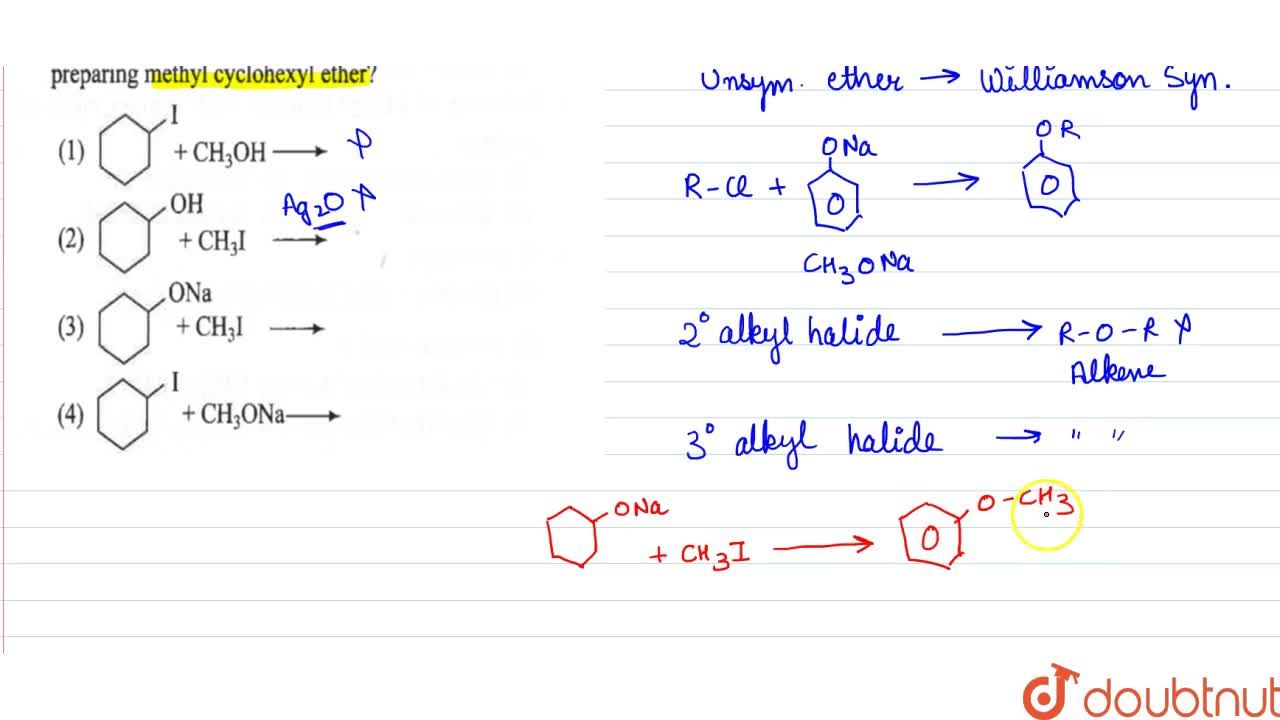 preparing methyl cyclohexyl ether?
(1) I + CH₃OH ⟶ X
(2) OH + CH₃I ⟶ Ag₂O X
(3) ONa + CH₃I ⟶
(4) I + CH₃ONa ⟶
Unsym. ether → Williamson Syn.
R-Cl + ONa ⟶ OR
CH₃ONa
2° alkyl halide ⟶ R-O-R X
Alkene
3° alkyl halide → " "
ONa + CH₃I ⟶ O-CH₃
doubtnut